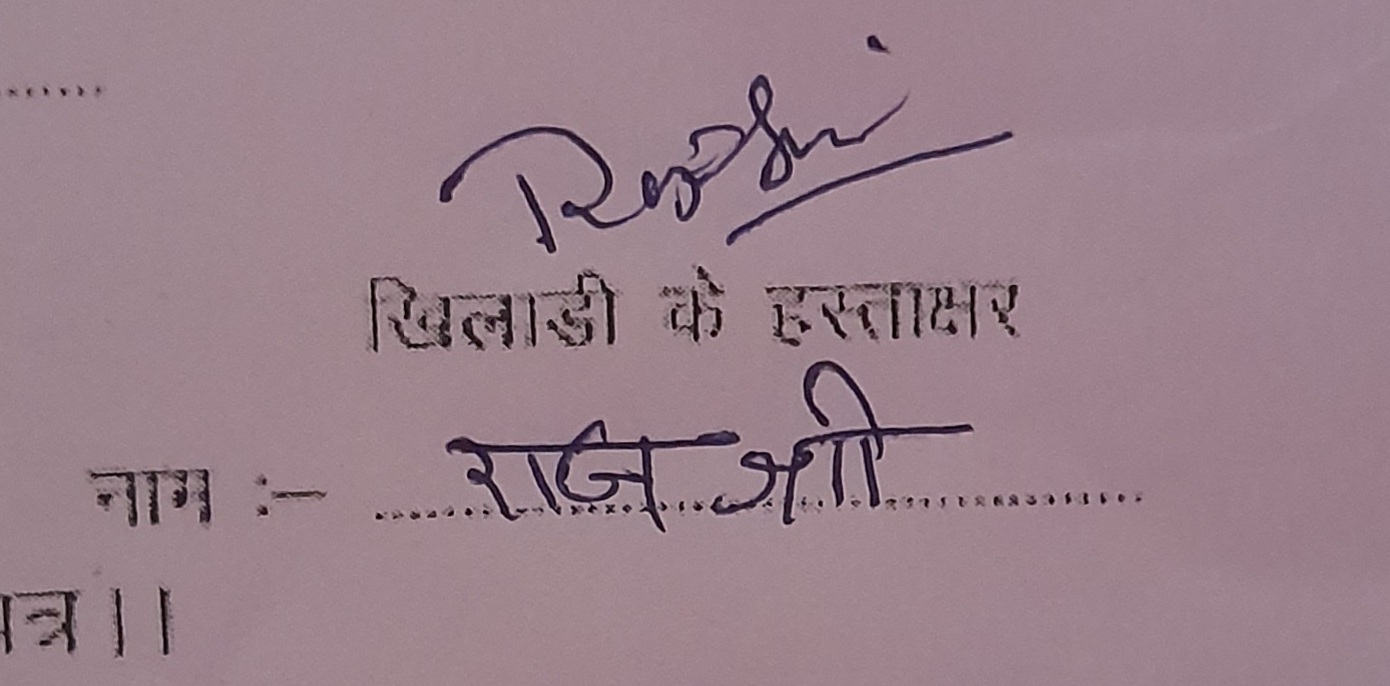 Rajshri
खिलाडी के हस्ताक्षर
नाम :- राज श्री
पत्र ।।